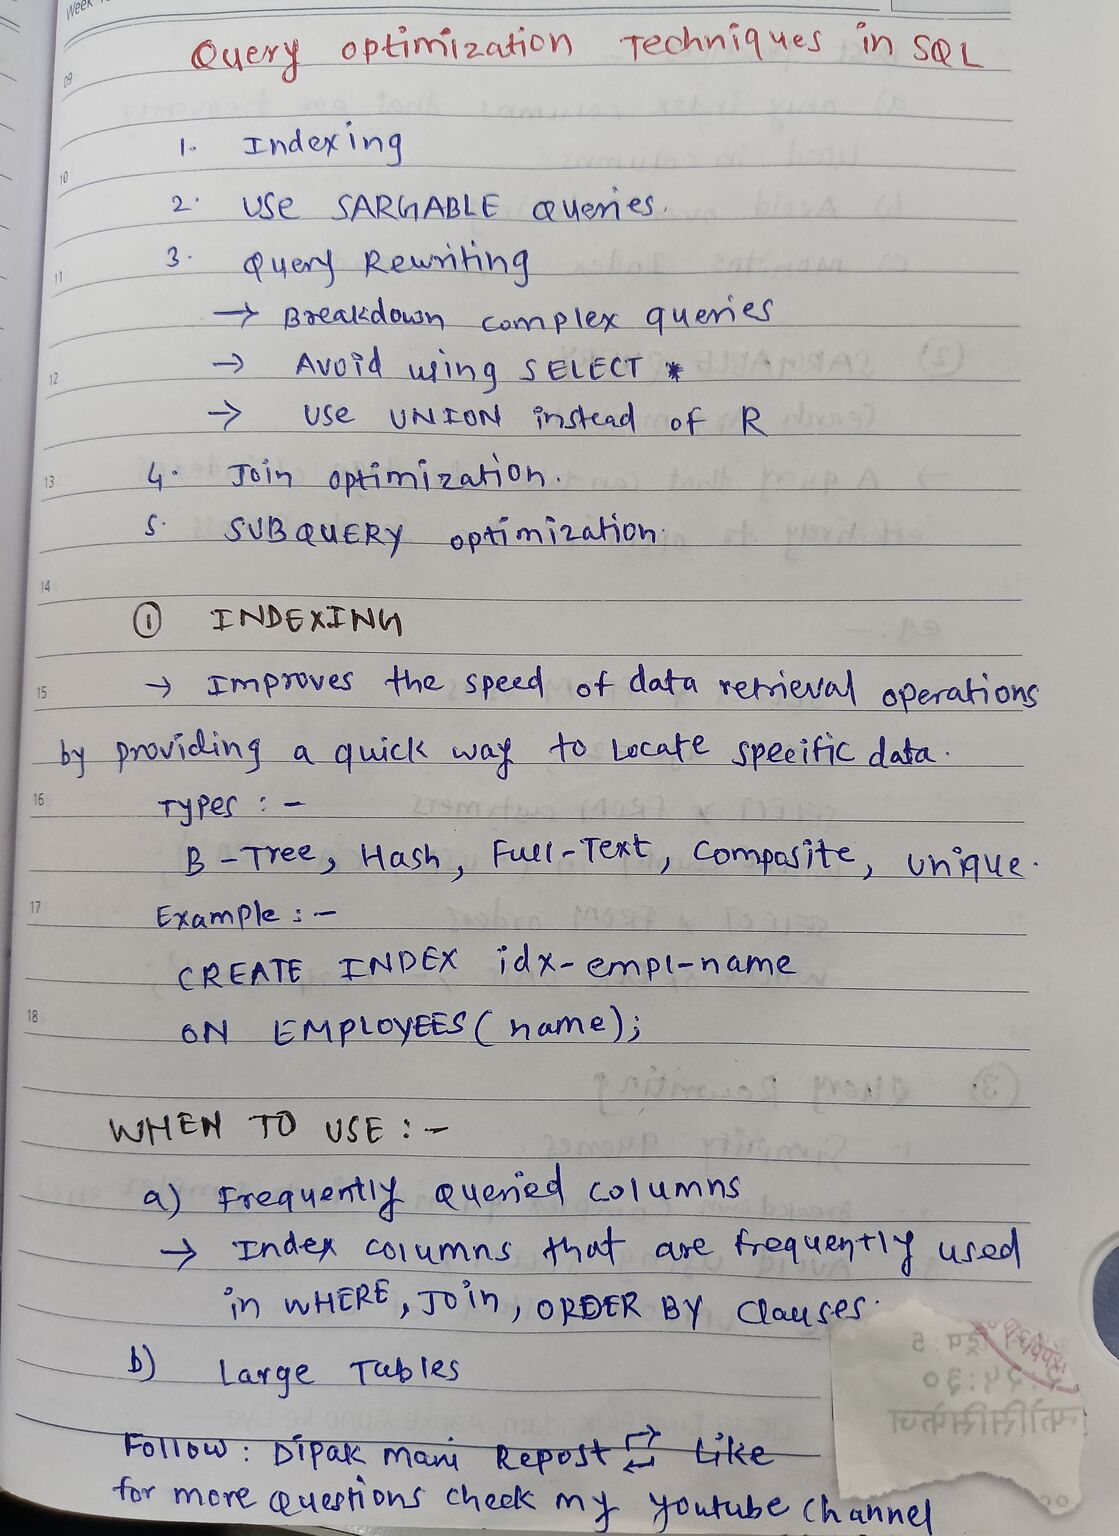 Week
Query optimization Techniques in SQL
09
1. Indexing
10
2. USE SARGABLE Queries.
3. Query Rewriting
11
→ Breakdown complex queries
→ Avoid using SELECT *
12
→ USE UNION instead of R
4. Join optimization.
13
5. SUBQUERY optimization.
14
① INDEXING
→ Improves the speed of data retrieval operations
15
by providing a quick way to Locate specific data.
16
Types :-
B-Tree, Hash, Full-Text, Composite, unique.
17
Example :-
CREATE INDEX idx-empl-name
18
ON EMPLOYEES(name);
WHEN TO USE :-
a) Frequently Queried columns
→ Index columns that are frequently used
in WHERE, Join, ORDER BY Clauses.
b) Large Tables
Follow : Dipak Mani Repost Like
for more Questions check my youtube channel